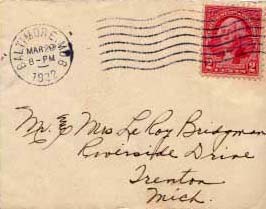 BALTIMORE, MD. 6
MAR 29
8-PM
1932
2 2
Mr. & Mrs LeRoy Bridgman
Riverside Drive
Trenton
Mich.